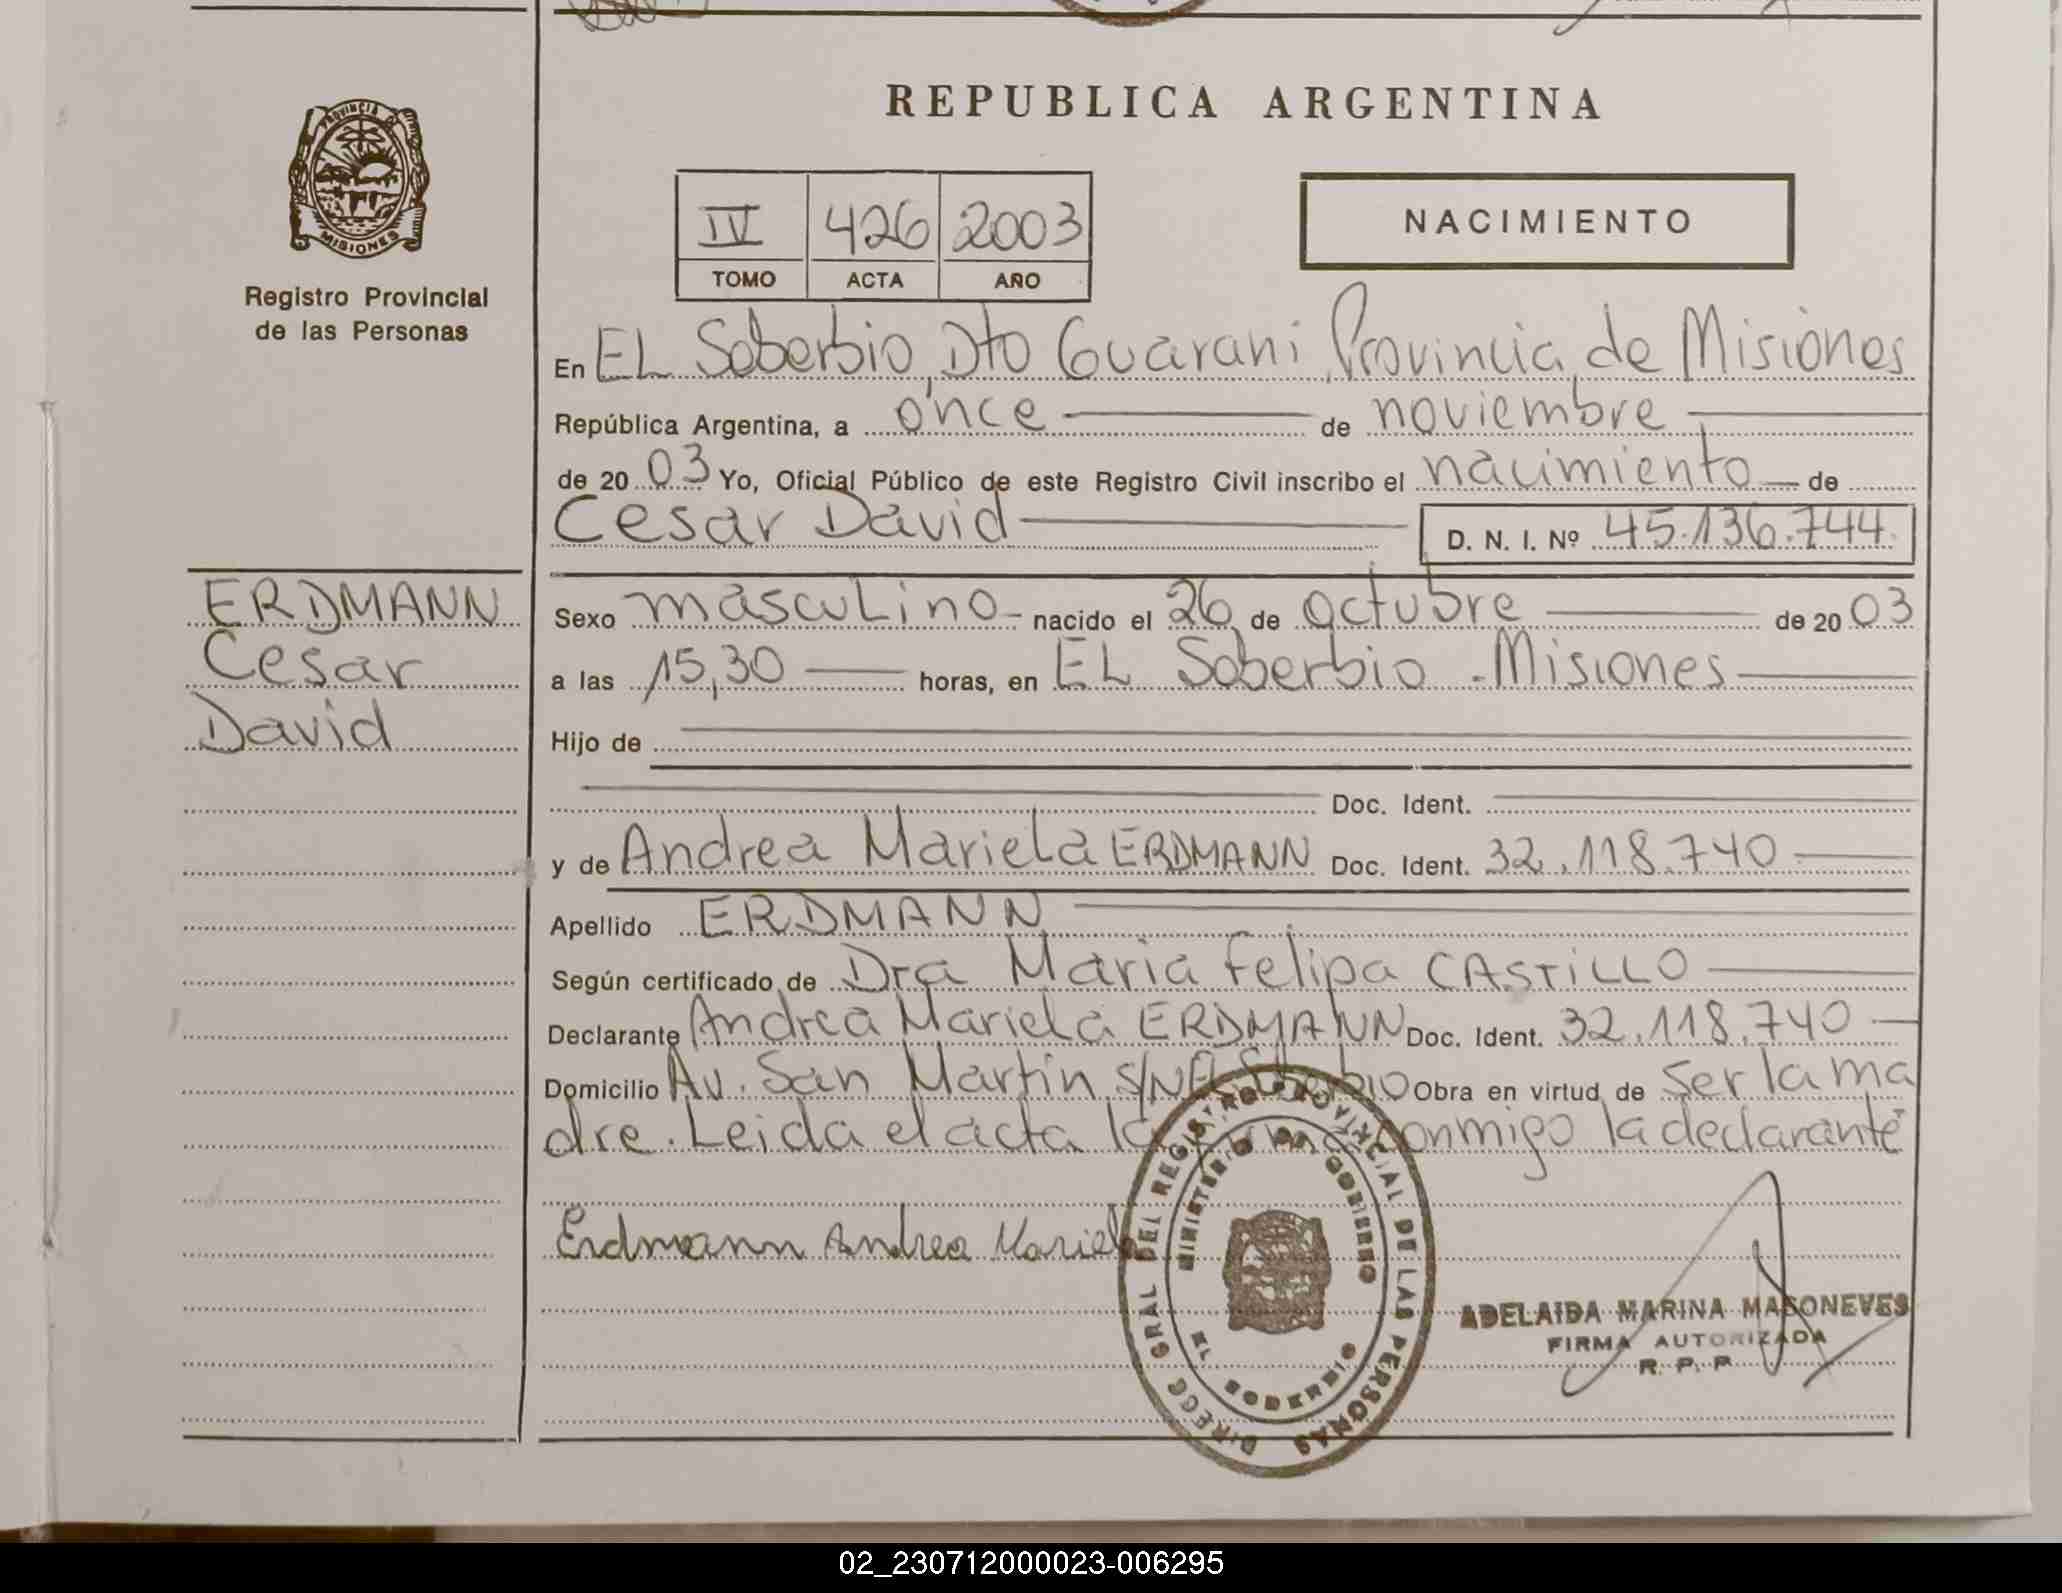 REPUBLICA ARGENTINA
PROVINCIA DE
MISIONES
Registro Provincial
de las Personas
IV 426 2003
TOMO ACTA AÑO
NACIMIENTO
En EL Soberbio, Dto Guarani, Provincia de Misiones
República Argentina, a once de noviembre
de 2003 Yo, Oficial Público de este Registro Civil inscribo el nacimiento de
Cesar David D. N. I. Nº 45.136.744
ERDMANN
Cesar
David
Sexo masculino nacido el 26 de octubre de 2003
a las 15,30 horas, en EL Soberbio - Misiones
Hijo de
Doc. Ident.
y de Andrea Mariela ERDMANN Doc. Ident. 32.118.740
Apellido ERDMANN
Según certificado de Dra Maria Felipa CASTILLO
Declarante Andrea Mariela ERDMANN Doc. Ident. 32.118.740
Domicilio Av. San Martin S/N El Soberbio Obra en virtud de ser la ma
dre. Leida el acta la firma conmigo la declarante
Erdmann Andrea Mariela
DIRECC GRAL DEL REGISTRO PROVINCIAL DE LAS PERSONAS
MINISTERIO DE GOBIERNO
EL SOBERBIO
ADELAIDA MARINA MASONEVES
FIRMA AUTORIZADA
R. P. P.
02_230712000023-006295